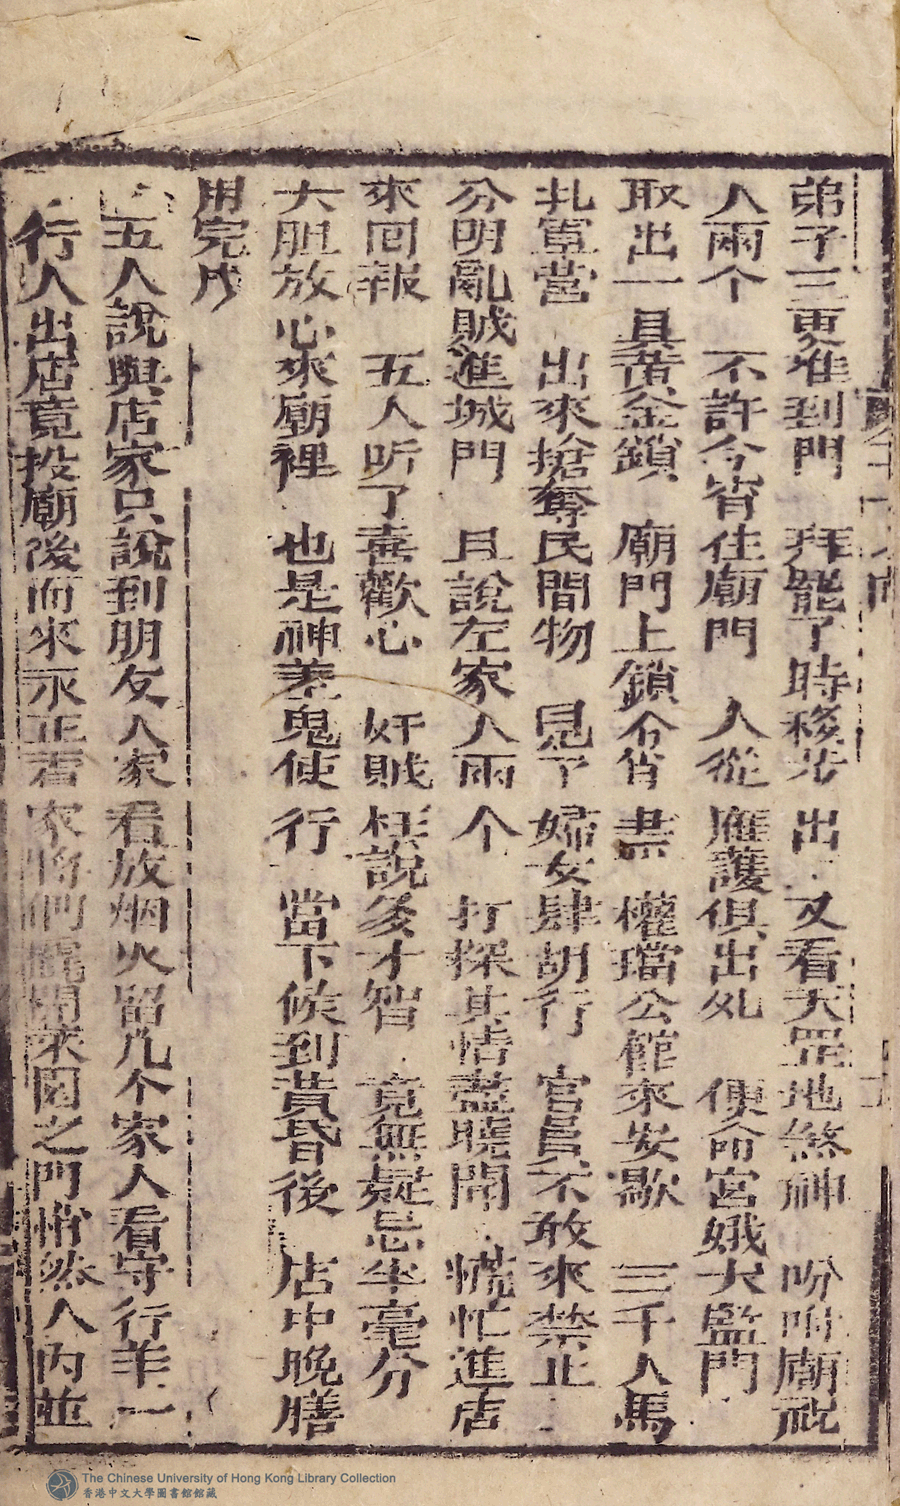 弟子三更准到門　拜罷了時移步出　又看天罡地煞神　吩咐廟祝
人兩个　不許今宵住廟門　人從雁護俱出処　便命宮娥大監門
取出一具黃金鎖　廟門上鎖今宵　權璫公館來安歇　三千人馬
扎軍營　出來搶奪民間物　見了婦女肆胡行　官員不敢來禁止
分明亂賊進城門　且說左家人兩个　打探其情盡曉聞　慌忙進店
來回報　五人听了喜歡心　奸賊枉說多才智　竟無疑忌半毫分
大胆放心來廟裡　也是神差鬼使行　當下候到黃昏後　店中晚膳
用完
五人說與店家只說到朋友人家看放烟火留几个家人看守行羊一
行人出店竟投廟後而來永正看家將們開菜园之門悄然人內並
The Chinese University of Hong Kong Library Collection
香港中文大學圖書館館藏